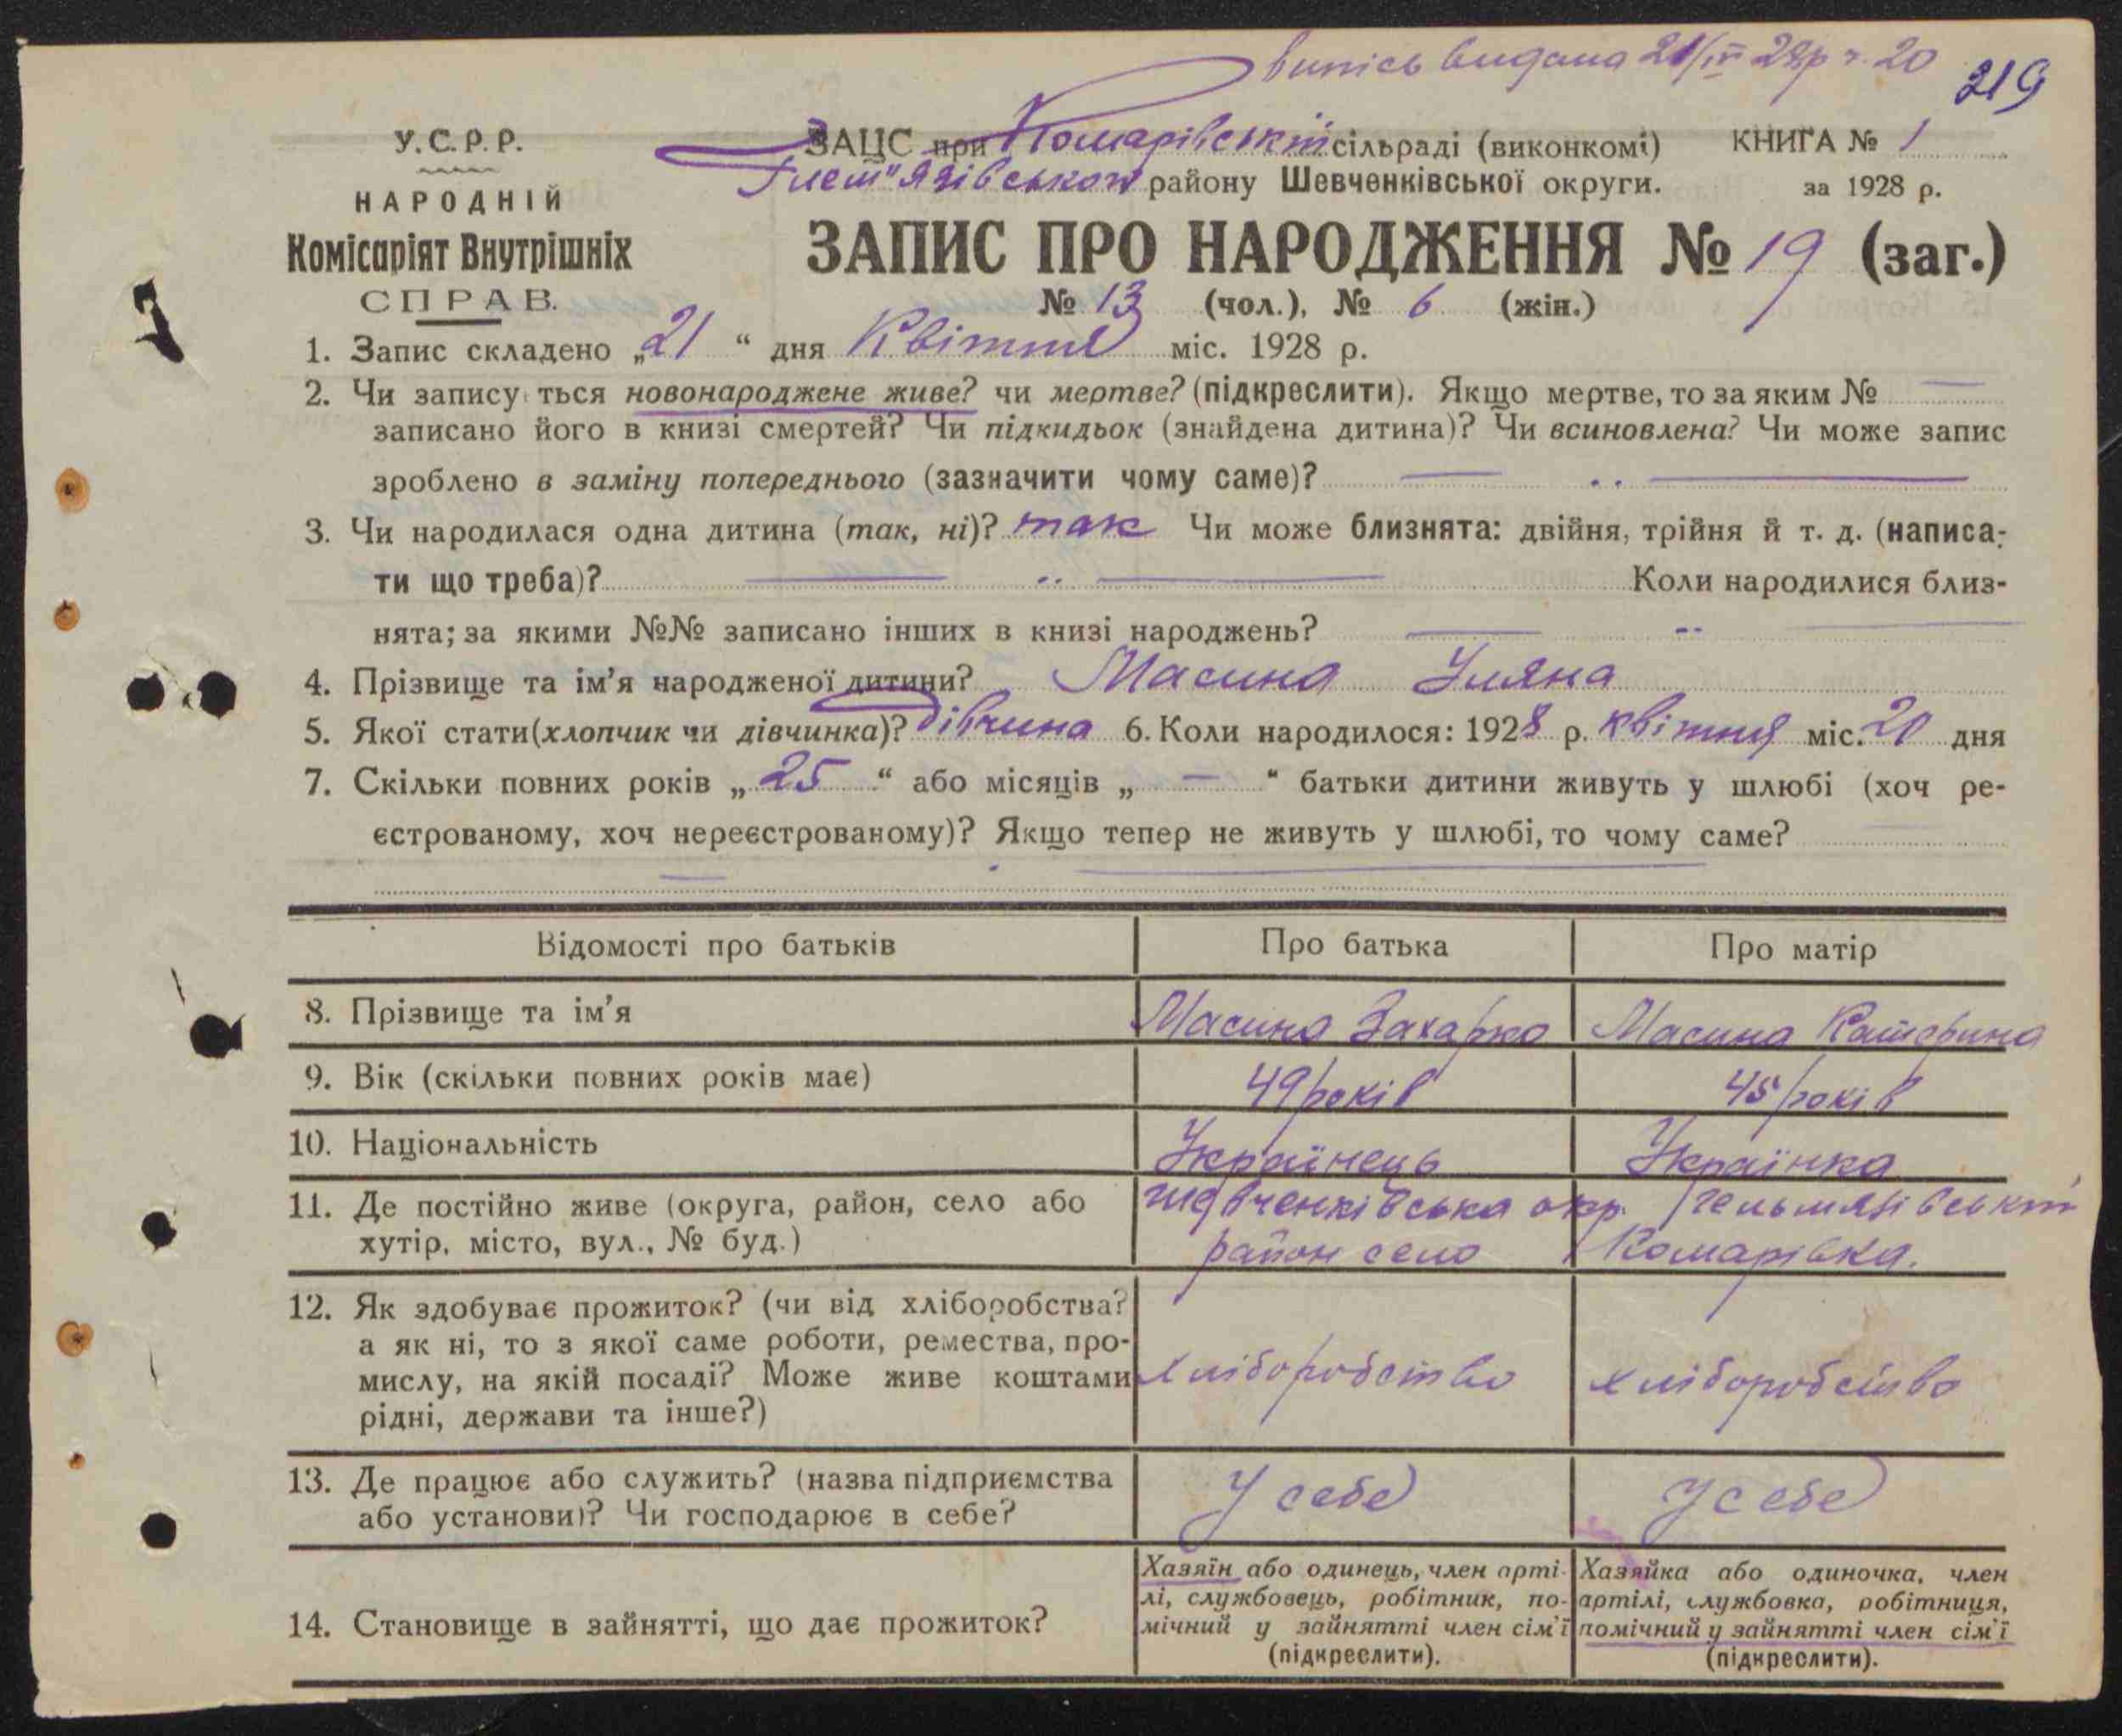 випісь видана 21/IV 28р ч. 20
319
У.С.Р.Р.
НАРОДНІЙ
Комісаріят Внутрішніх
СПРАВ.
ЗАЦС при Комарівській сільраді (виконкомі) КНИГА № 1
району Шевченківської округи. за 1928 р.
ЗАПИС ПРО НАРОДЖЕННЯ № 19 (заг.)
№ 13 (чол.), № 6 (жін.)
1. Запис складено „21“ дня Квітня міс. 1928 р.
2. Чи запису ться новонароджене живе? чи мертве? (підкреслити). Якщо мертве, то за яким № —
записано його в книзі смертей? Чи підкидьок (знайдена дитина)? Чи всиновлена? Чи може запис
зроблено в заміну попереднього (зазначити чому саме)? — „ —
3. Чи народилася одна дитина (так, ні)? так Чи може близнята: двійня, трійня й т. д. (написа-
ти що треба)? — „ — Коли народилися близ-
нята; за якими №№ записано інших в книзі народжень? — „ —
4. Прізвище та ім'я народженої дитини? Масина Уляна
5. Якої стати (хлопчик чи дівчинка)? дівчина 6. Коли народилося: 1928 р. квітня міс. 20 дня
7. Скільки повних років „25“ або місяців „—“ батьки дитини живуть у шлюбі (хоч ре-
єстрованому, хоч нереєстрованому)? Якщо тепер не живуть у шлюбі, то чому саме?
Відомості про батьків Про батька Про матір
8. Прізвище та ім'я Масина Захарко Масина Катерина
9. Вік (скільки повних років має) 49 років 45 років
10. Національність Українець Українка
11. Де постійно живе (округа, район, село або Шевченківська окр. Гельмязівський
хутір, місто, вул., № буд.) район село Комарівка.
12. Як здобуває прожиток? (чи від хліборобства?
а як ні, то з якої саме роботи, ремества, про-
мислу, на якій посаді? Може живе коштами хліборобство хліборобство
рідні, держави та інше?)
13. Де працює або служить? (назва підприємства У себе У себе
або установи)? Чи господарює в себе?
14. Становище в зайнятті, що дає прожиток?
Хазяїн або одинець, член арті-
лі, службовець, робітник, по-
мічний у зайнятті член сім'ї
(підкреслити).
Хазяйка або одиночка, член
артілі, службовка, робітниця,
помічний у зайнятті член сім'ї
(підкреслити).